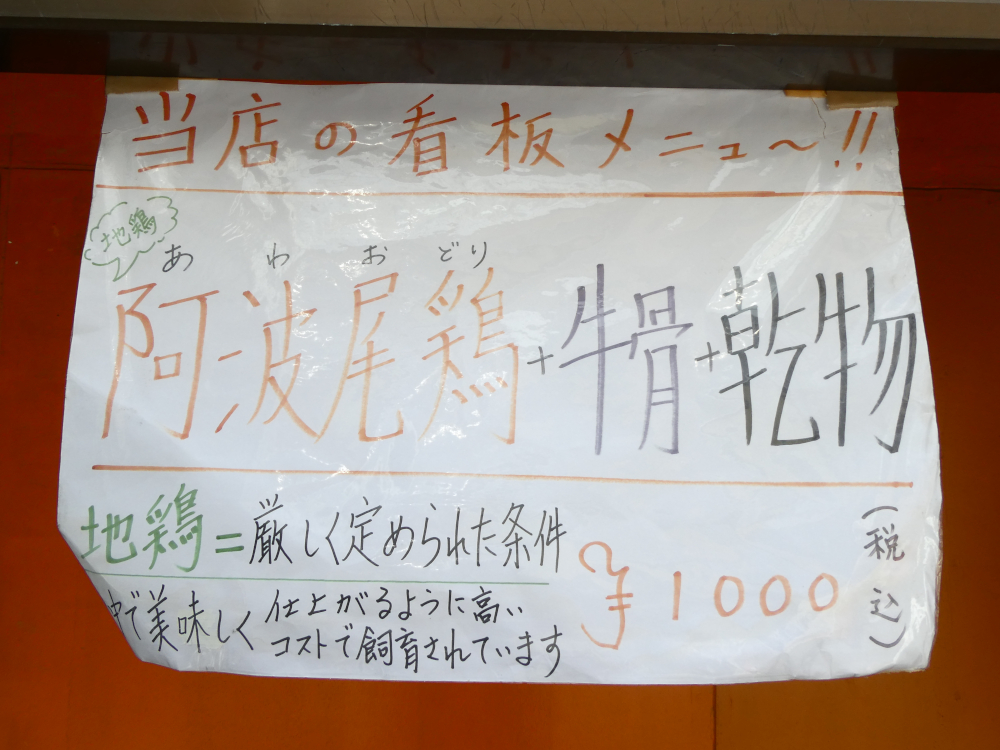 当店の看板メニュ～!!
地鶏
あわおどり
阿波尾鶏+牛骨+乾物
地鶏=厳しく定められた条件
で美味しく仕上がるように高い
コストで飼育されています
¥1000
(税込)